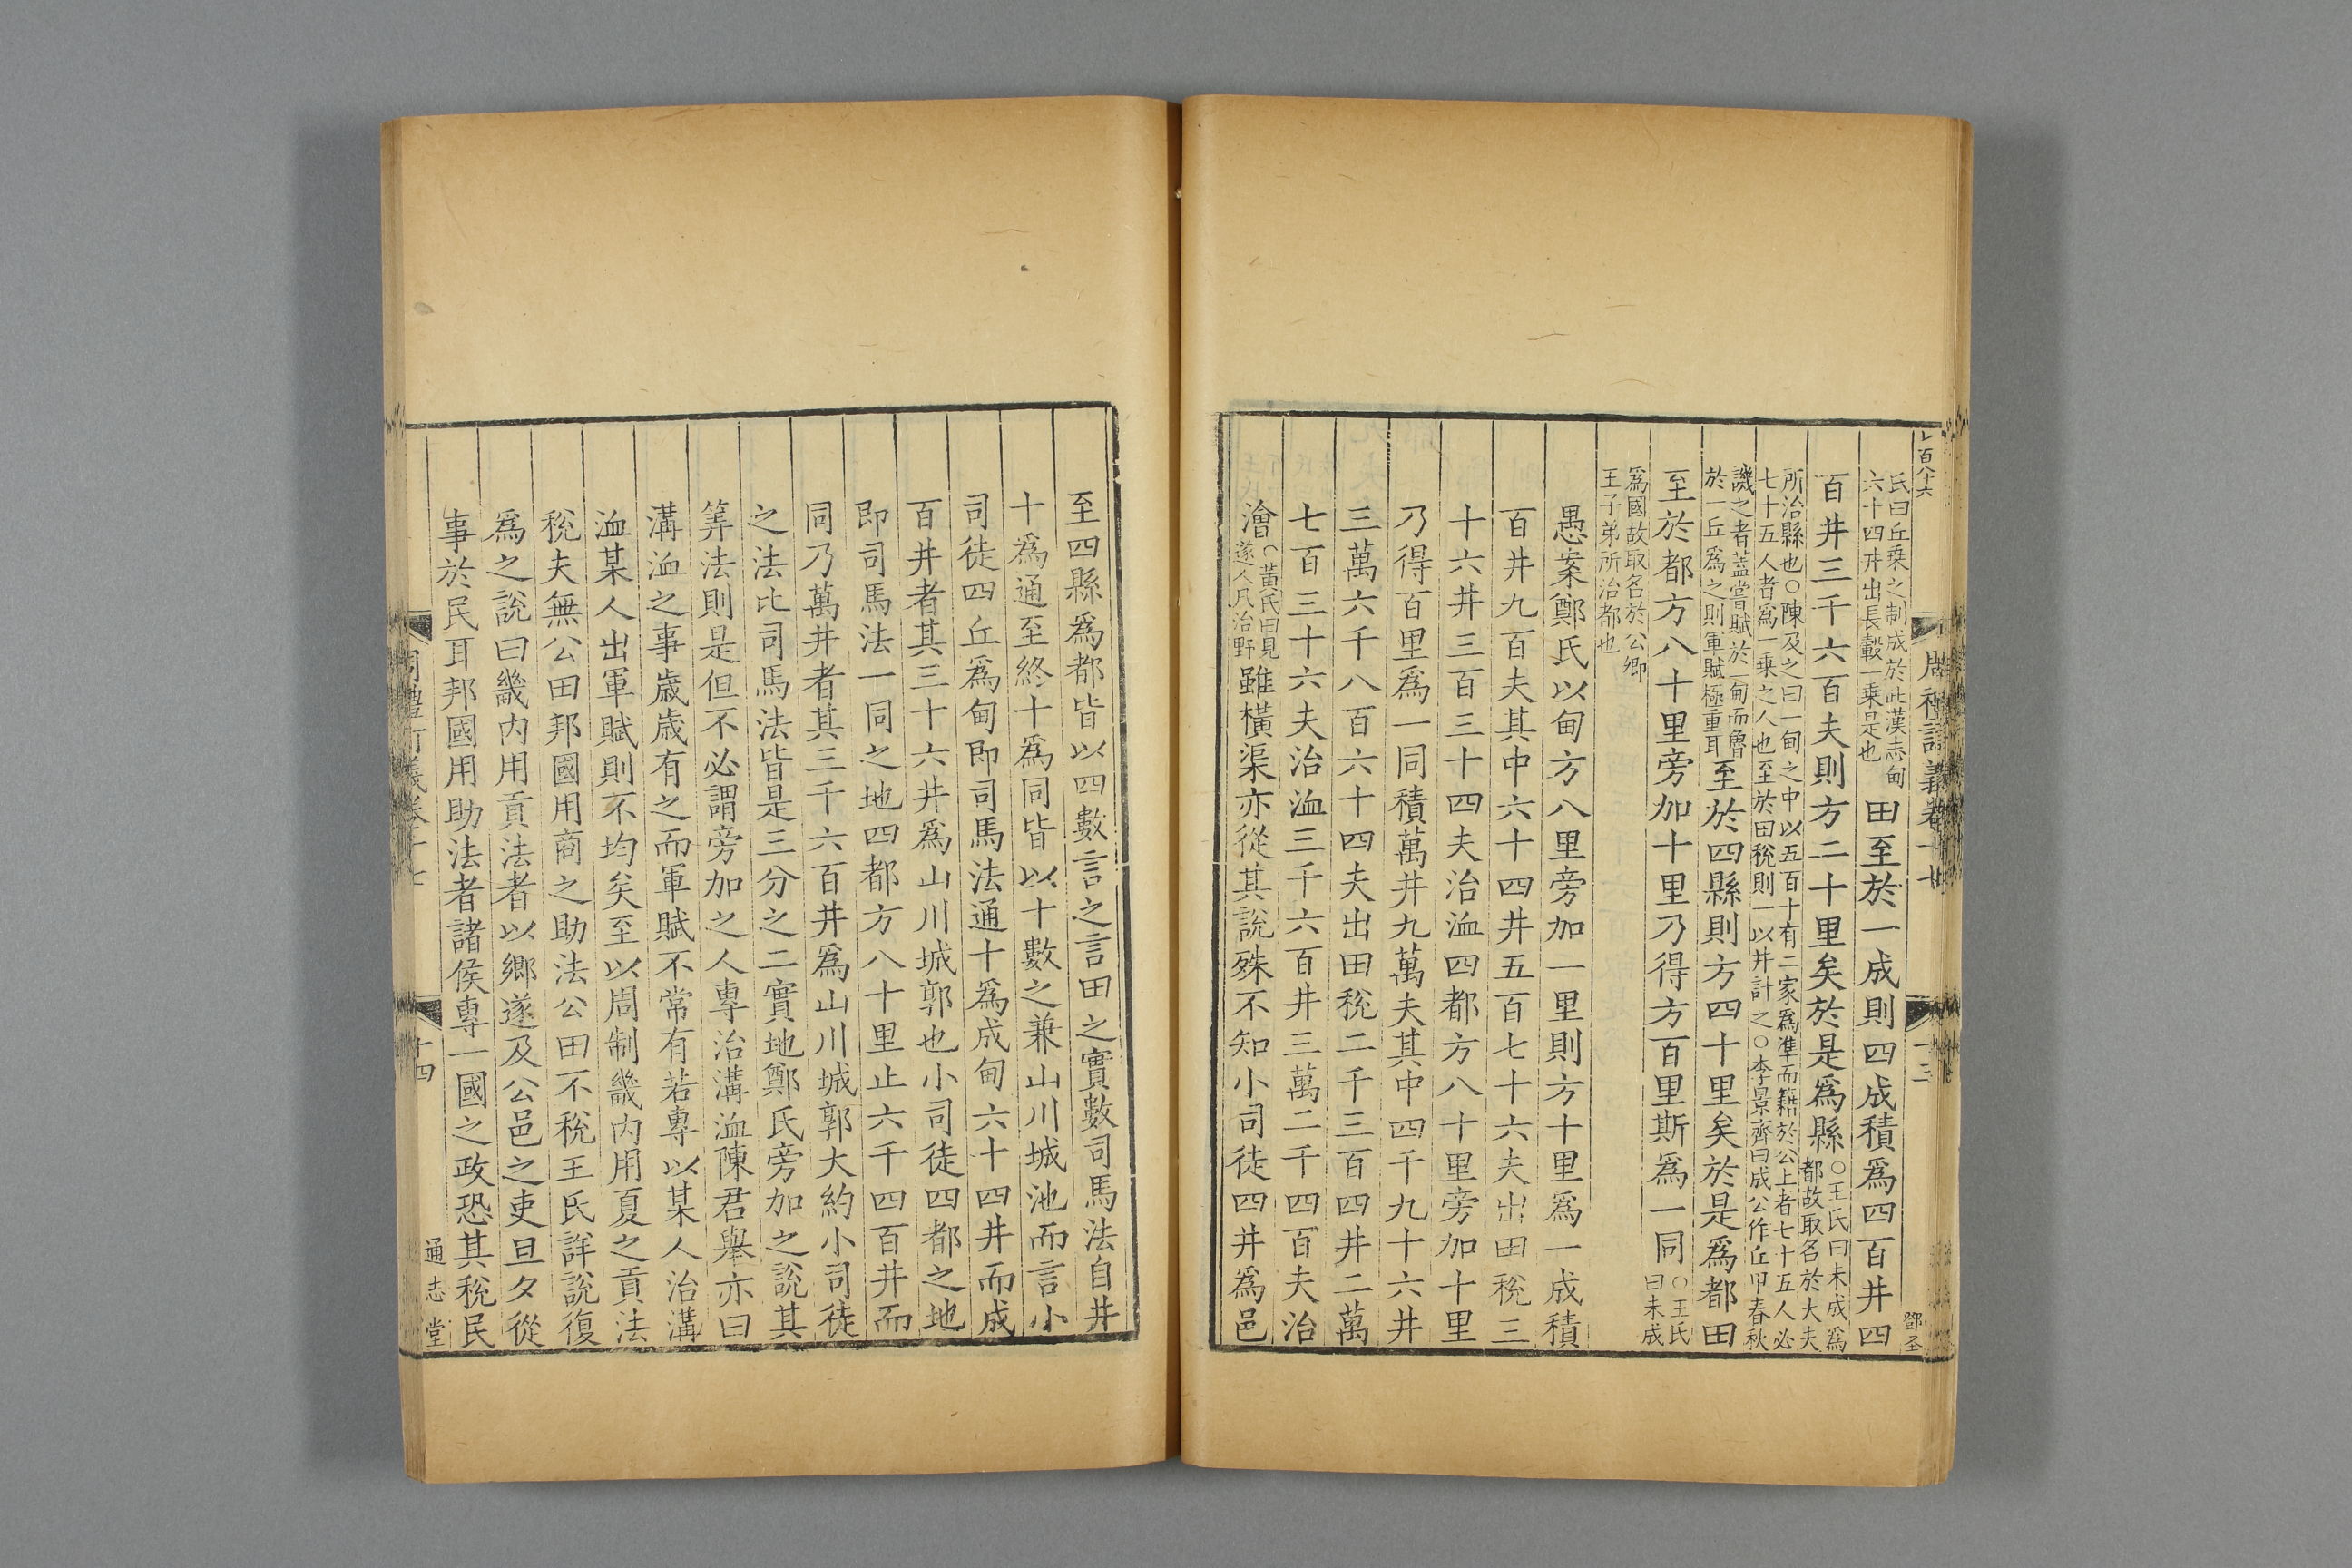 氏曰丘乗之制成於此漢志甸
六十四井出長轂一乗是也
田至於一成則四成積爲四百井四
百井三千六百夫則方二十里矣於是爲縣
○王氏曰未成爲
都故取名於大夫
所治縣也○陳及之曰一甸之中以五百十有二家爲準而籍於公上者七十五人必
七十五人者爲一乗之人也至於田稅則一以井計之○李景齊曰成公作丘甲春秋
譏之者蓋嘗賦於一甸而魯
於一丘爲之則軍賦極重耳
至於四縣則方四十里矣於是爲都田
至於都方八十里旁加十里乃得方百里斯爲一同
○王氏
曰未成
爲國故取名於公卿
王子弟所治都也
愚案鄭氏以甸方八里旁加一里則方十里爲一成積
百井九百夫其中六十四井五百七十六夫出田稅三
十六井三百三十四夫治洫四都方八十里旁加十里
乃得百里爲一同積萬井九萬夫其中四千九十六井
三萬六千八百六十四夫出田稅二千三百四井二萬
七百三十六夫治洫三千六百井三萬二千四百夫治
澮
○黃氏曰見
遂人凡治野
雖橫渠亦從其說殊不知小司徒四井爲邑
鄧圣
至四縣爲都皆以四數言之言田之實數司馬法自井
十爲通至終十爲同皆以十數之兼山川城池而言小
司徒四丘爲甸即司馬法通十爲成甸六十四井而成
百井者其三十六井爲山川城郭也小司徒四都之地
即司馬法一同之地四都方八十里止六千四百井而
同乃萬井者其三千六百井爲山川城郭大約小司徒
之法比司馬法皆是三分之二實地鄭氏旁加之說其
筭法則是但不必謂旁加之人專治溝洫陳君舉亦曰
溝洫之事歲歲有之而軍賦不常有若專以某人治溝
洫某人出軍賦則不均矣至以周制畿内用夏之貢法
稅夫無公田邦國用商之助法公田不稅王氏詳說復
爲之說曰畿内用貢法者以鄉遂及公邑之吏旦夕從
事於民耳邦國用助法者諸侯專一國之政恐其稅民
十四
通志堂